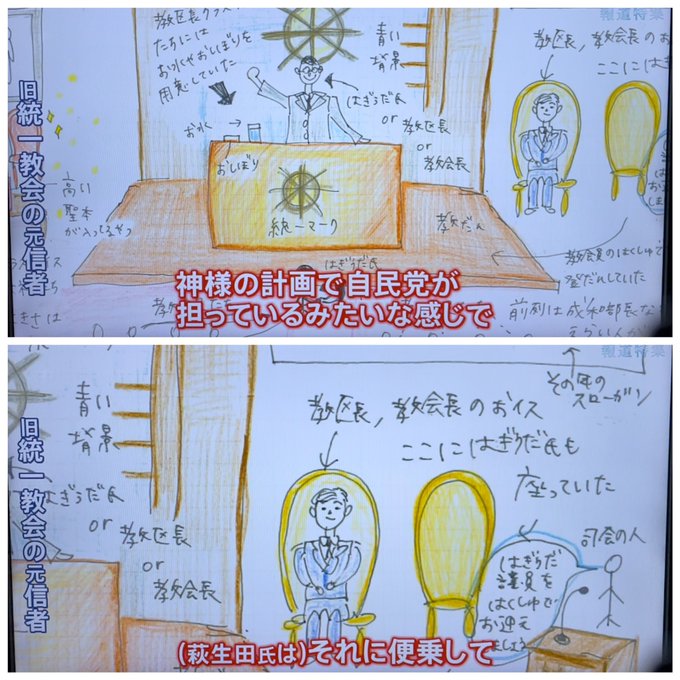 報道特集
教区長クラス
たちには
お水やおしぼりを
用意していた
青い
背景
はぎうだ氏
or
教区長
or
教会長
お水
おしぼり
統一マーク
高い
聖本
が入ってるやつ
教だん
教区長,教会長のお
ここには
はぎうだ氏
教会員のはくしゅで
登だんしていた
前列は成和部長な
旧統一教会の元信者
神様の計画で自民党が
担っているみたいな感じで
報道特集
その年の
スローガン
青い
背景
はぎうだ氏
or 教区長
or
教会長
教区長,教会長のおイス
ここにはぎうだ氏も
座っていた
司会の人
はぎうだ
議員を
はくしゅで
お迎え
しましょう
旧統一教会の元信者
(萩生田氏は)それに便乗して